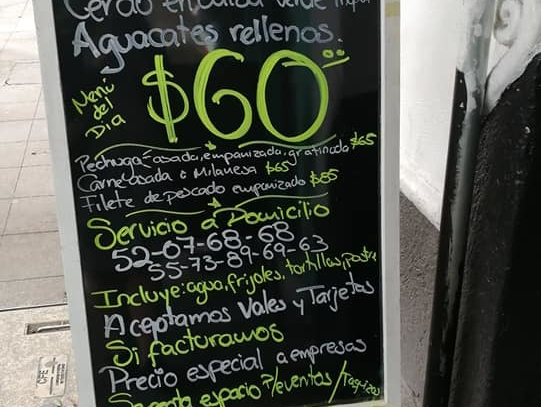 Cerdo en salsa verde
Aguacates rellenos.
Menú del Dia $60.00
Pechuga-asada, empanizada, gratinada $65
Carne asada o Milanesa $65
Filete de pescado empanizado $85
Servicio a Domicilio
52-07-68-68
55-73-89-69-63
Incluye: agua, frijoles, tortillas, postre
Aceptamos Vales y Tarjetas
Si facturamos
Precio especial a empresas
espacio P/eventos /
CFE